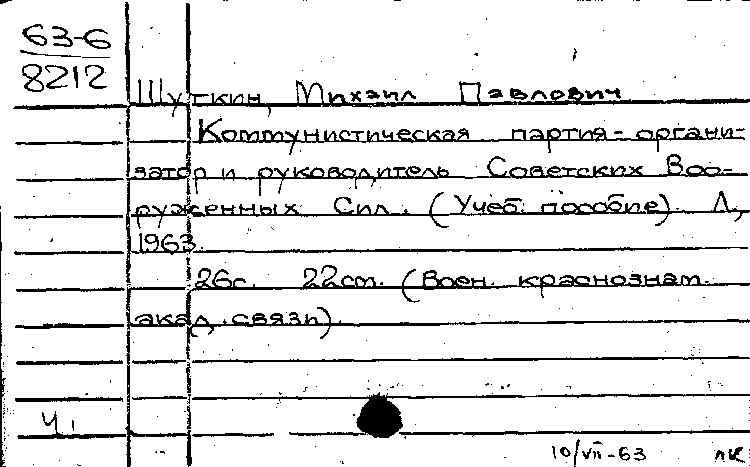 63-6
8212
Шуткин, Михаил Павлович
Коммунистическая партия - органи-
затор и руководитель Советских Воо-
руженных Сил. (Учеб. пособие). Л,
1963.
26с. 22см. (Воен. краснознам.
акад. связи).
Ч.
10/VII-63 ЛК